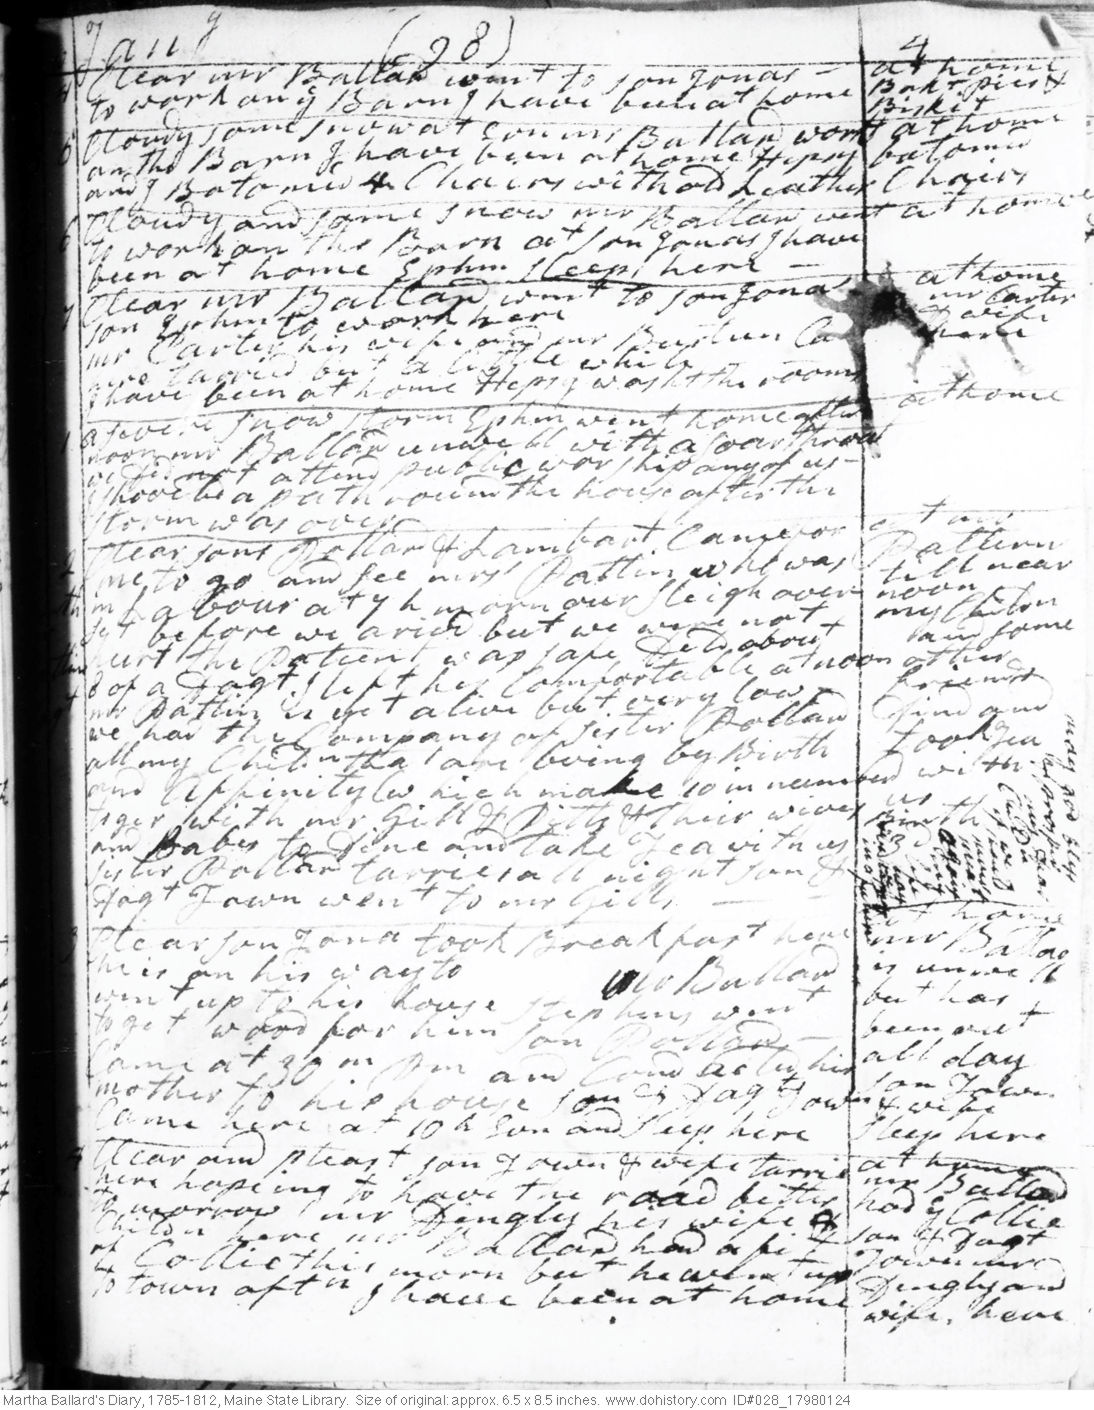 Jany (28) 4
Clear mr Ballard went to son Jonas —
to work on ye Barn I have been at home
at home
Bakt pies &
Biskit
Cloudy some snow at Eve mr Ballard went
on the Barn I have been at home Hepsy
and I Botomd 4 Chairs with old Leather
at home
botomd
Chairs
Cloudy and some snow mr Ballard went
to work on the Barn at son Jonas I have
been at home Ephm sleeps here —
at home
Clear mr Ballard went to son Jonas
son Ephm to work here
mr Carter his wife and mr
here tarried but a little while
I have been at home Hepsy washt the rooms
at home
mr Carter
& wife
here
a severe snow storm Ephm went home after
noon mr Ballard unwell with a soar throat
we did not attend public worship any of us —
I shoveld a path round the house after the
storm was over
at home
Clear sons Pollard & Lambart Came for
me to go and see mrs Pattin who was
in Labour at 7 h morn our sleigh over
set before we arivd but we were not
hurt the Patient was safe Deld about
8 of a Dagt I left her Comfortable at noon
mr Pattin is yet alive but very low
we had the Company of sister Pollard
all my Childn that are living by Birth
and Affinity which make 10 in number
with mr Gill & Pitts & their wives
and Babes to Dine and take Tea with us
sister Pollard tarries all night son &
Dagt Town went to mr Gills —
at mr
Pattins
till near
noon
my Childn
and some
other
friends
Dind and
took Tea
with
us
Birth
Clear son Jona took Breakfast here
he is on his way to
mr Ballard
went up to his house Stephens went
to get wood for him son Pollard
Came at 3 h Pm and Conducted his
mother to his house son & Dagt Town
Came here at 10 h Eve and sleep here
at home
mr Ballard
is unwell
but has
been out
all day
son Town
& wife
sleep here
Clear and pleast son Town & wife tarrie
here hopeing to have the road better
to morrow mr Dingly his wife &
Childn here mr Ballard had a fit
of Collic this morn but he went up
to town aftn I have been at home
at home
mr Ballard
had ye Collic
son & Dagt
Town mr
Dingly and
wife here
Martha Ballard's Diary, 1785-1812, Maine State Library. Size of original: approx. 6.5 x 8.5 inches. www.dohistory.com ID#028_17980124